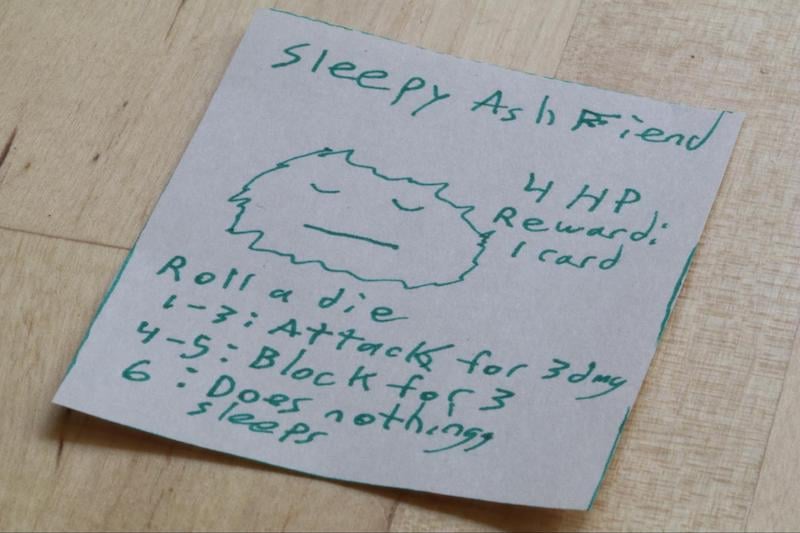 Sleepy Ash Fiend
4 HP
Reward:
1 card
Roll a die
1-3: Attack for 3dmg
4-5: Block for 3
6: Does nothing,
sleeps